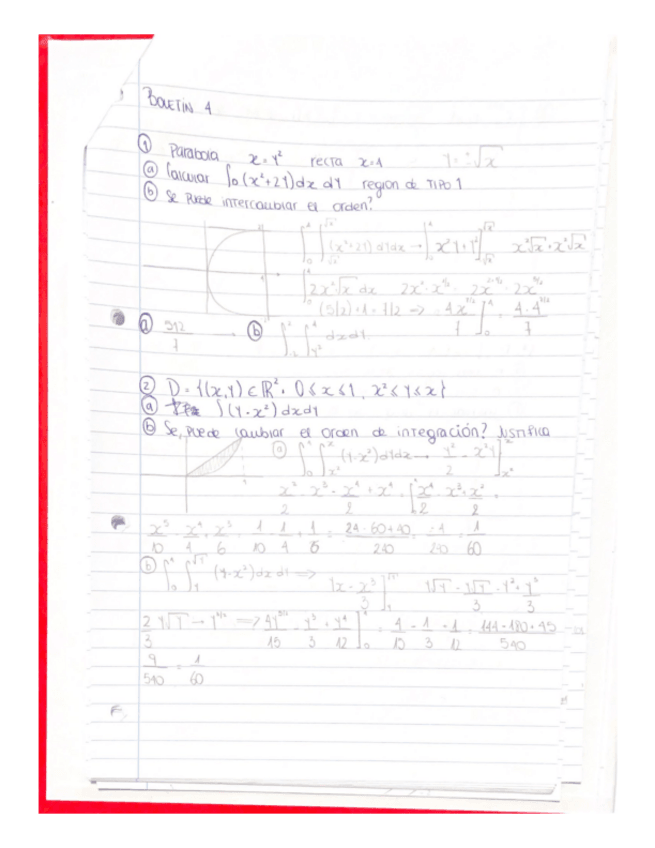 BOLETÍN 4
① Parabola x = y² recta x=4 y = ±√x
ⓐ Calcular ∫_D (x²+2y) dx dy region de TIPO 1
ⓑ Se puede intercambiar el orden?
∫₀⁴ ∫ (x²+2y) dy dx → x²y + y² x²√x + x²√x
∫₀⁴ 2x²√x dx 2x² · x^(1/2) 2x^(5/2)
(5/2)+1 = 7/2 ⇒ 4x^(7/2)/7 ]₀⁴ = 4·4^(7/2)/7
ⓐ 512/7 ⓑ ∫₋₂² ∫_{y²}^4 dx dy
② D = {(x,y) ∈ ℝ² · 0 ≤ x ≤ 1, x² ≤ y ≤ x}
ⓐ ∫(y-x²) dx dy
ⓑ Se puede cambiar el orden de integración? Justifica
ⓐ ∫₀¹ ∫_{x²}^x (y-x²) dy dx → y²/2 - x²y ]_{x²}^x
x²/2 - x³ - x⁴/2 + x⁴ = ∫ x⁴/2 - x³ + x²/2
x⁵/10 - x⁴/4 + x³/6 = 1/10 - 1/4 + 1/6 = 24-60+40/240 = 1/60
ⓑ ∫₀¹ ∫_y^√y (y-x²) dx dy ⇒ yx - x³/3 ]_y^√y y√y - y√y/3 - y² + y³/3
2/3 y√y - ⇒ 4y^(5/2)/15 - y³/3 + y⁴/12 ]₀¹ = 4/15 - 1/3 + 1/12 = 144-180+45/540
9/540 = 1/60